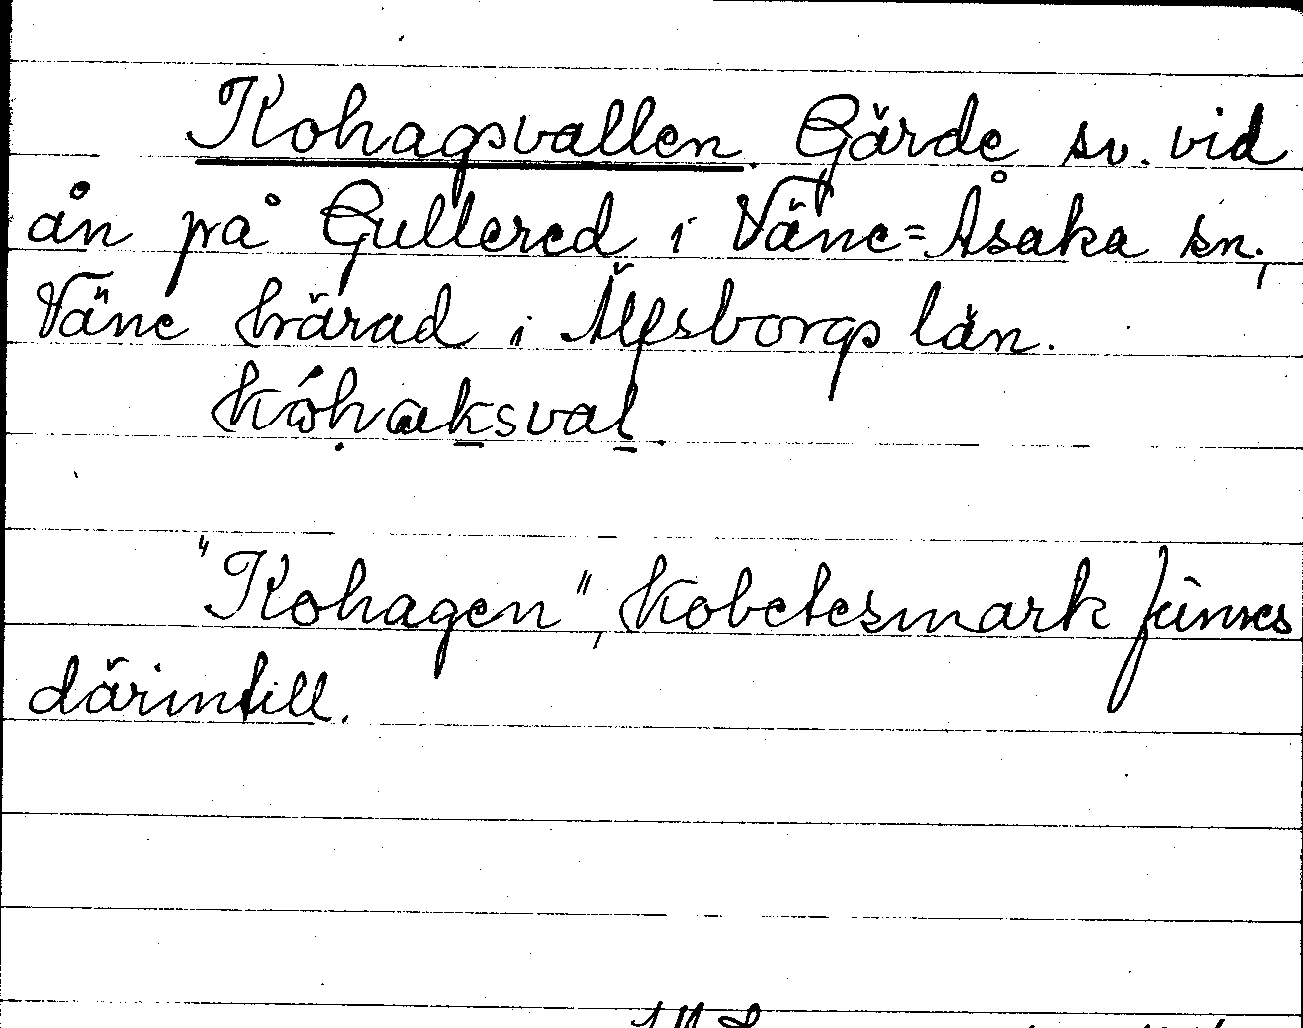 Kohagsvallen. Gärde sv. vid
ån på Gullered i Väne=Åsaka sn,
Väne härad i Älfsborgs län.
kóhaksval.
"Kohagen", kobetesmark finnes
därintill.